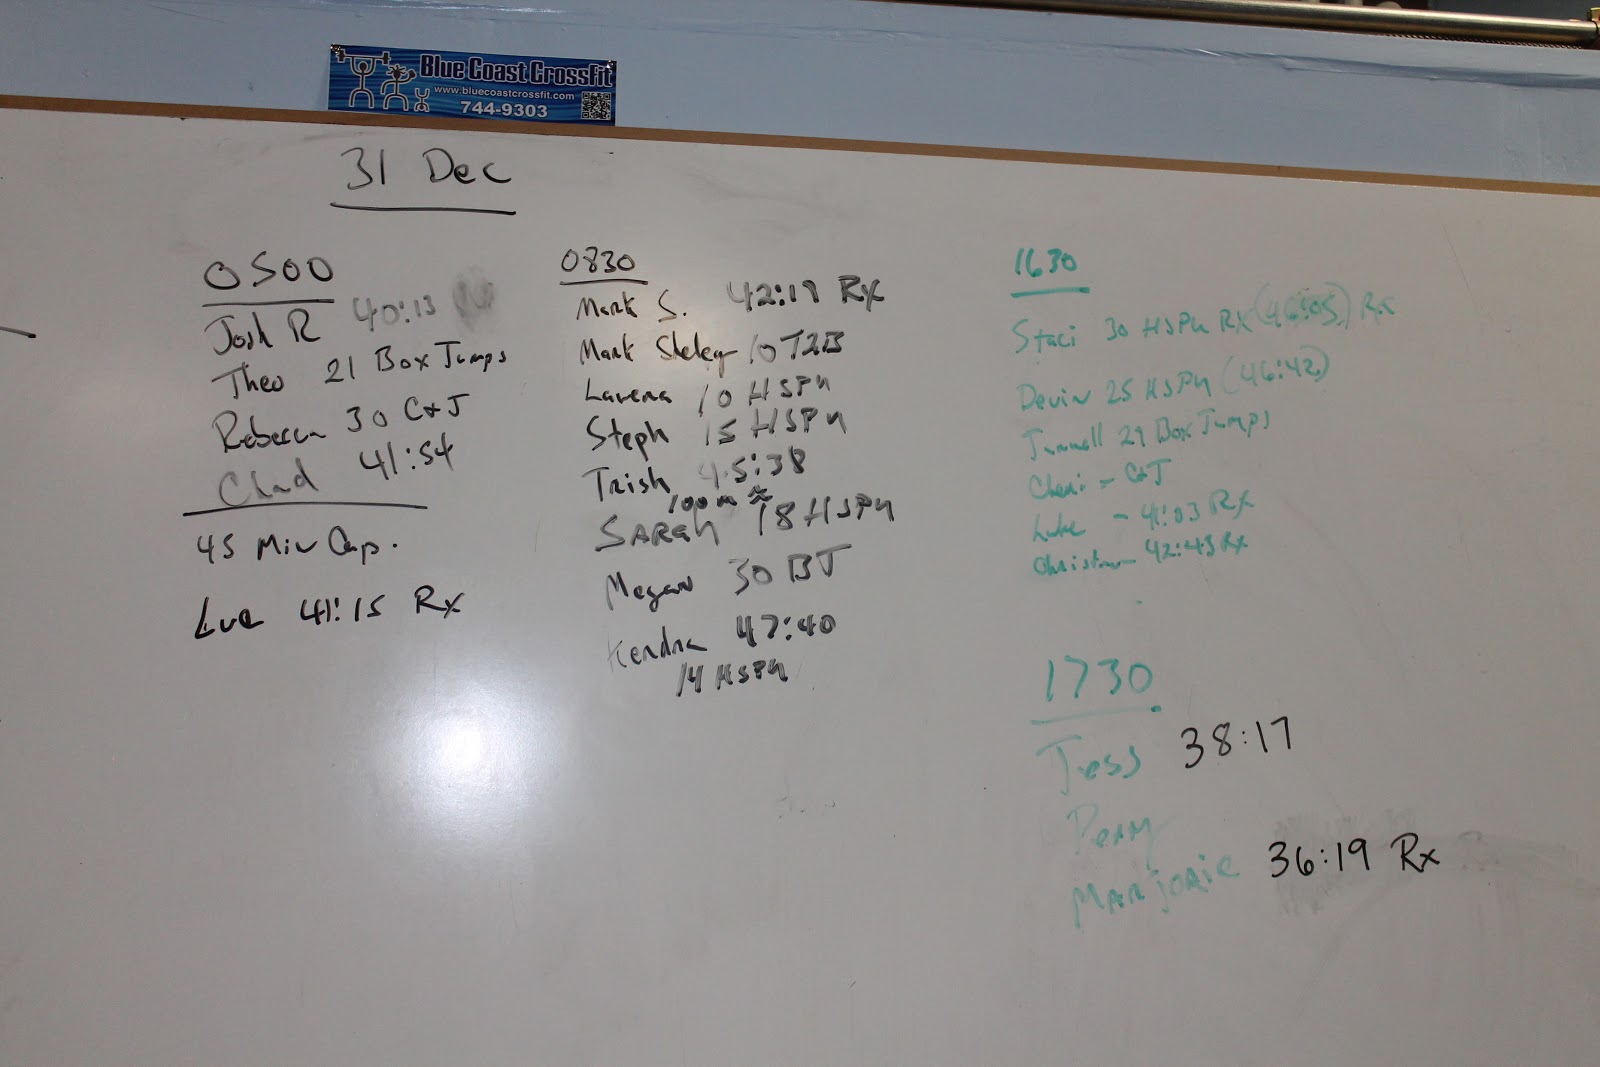 Blue Coast CrossFit
www.bluecoastcrossfit.com
744-9303
31 Dec
0500
Josh R 40:13
Theo 21 Box Jumps
Rebecca 30 C&J
Chad 41:54
45 Min Cap.
Lue 41:15 Rx
0830
Mark S. 42:19 Rx
Mark 10 T2B
Lavena 10 HSPU
Steph 15 HSPU
Trish 45:38
100m
SARAH 18 HSPU
Megan 30 BJ
Kendra 47:40
14 HSPU
1630
Staci 30 HSPU Rx (46:05) Rx
Devin 25 HSPU (46:42)
29 Box Jumps
Cheri - C&J
Luke - 41:03 Rx
42:43 Rx
1730
Jess 38:17
Perry
MARJORIE 36:19 Rx